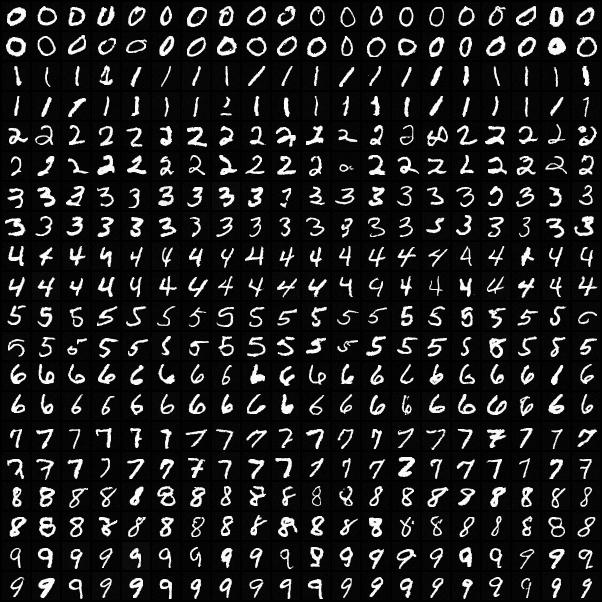 0 0 0 0 0 0 0 0 0 0 0 0 0 0 0 0 0 0 0 0
0 0 0 0 0 0 0 0 0 0 0 0 0 0 0 0 0 0 0 0
1 1 1 1 1 1 1 1 1 1 1 1 1 1 1 1 1 1 1 1
1 1 1 1 1 1 1 1 1 1 1 1 1 1 1 1 1 1 1 1
2 2 2 2 2 2 2 2 2 2 2 2 2 2 2 2 2 2 2 2
2 2 2 2 2 2 2 2 2 2 2 2 2 2 2 2 2 2 2
3 3 3 3 3 3 3 3 3 3 3 3 3 3 3 3 3 3 3
3 3 3 3 3 3 3 3 3 3 3 3 3 3 3 3 3 3 3
4 4 4 4 4 4 4 4 4 4 4 4 4 4 4 4 4 4 4 4
4 4 4 4 4 4 4 4 4 4 4 4 4 4 4 4 4 4 4
5 5 5 5 5 5 5 5 5 5 5 5 5 5 5 5 5 5 5
5 5 5 5 5 5 5 5 5 5 5 5 5 5 5 5 5 5
6 6 6 6 6 6 6 6 6 6 6 6 6 6 6 6 6 6 6
6 6 6 6 6 6 6 6 6 6 6 6 6 6 6 6 6 6 6 6
7 7 7 7 7 7 7 7 7 7 7 7 7 7 7 7 7 7 7
7 7 7 7 7 7 7 7 7 7 7 7 7 7 7 7 7 7 7
8 8 8 8 8 8 8 8 8 8 8 8 8 8 8 8 8 8 8 8
8 8 8 8 8 8 8 8 8 8 8 8 8 8 8 8 8 8 8
9 9 9 9 9 9 9 9 9 9 9 9 9 9 9 9 9 9 9
9 9 9 9 9 9 9 9 9 9 9 9 9 9 9 9 9 9 9 9